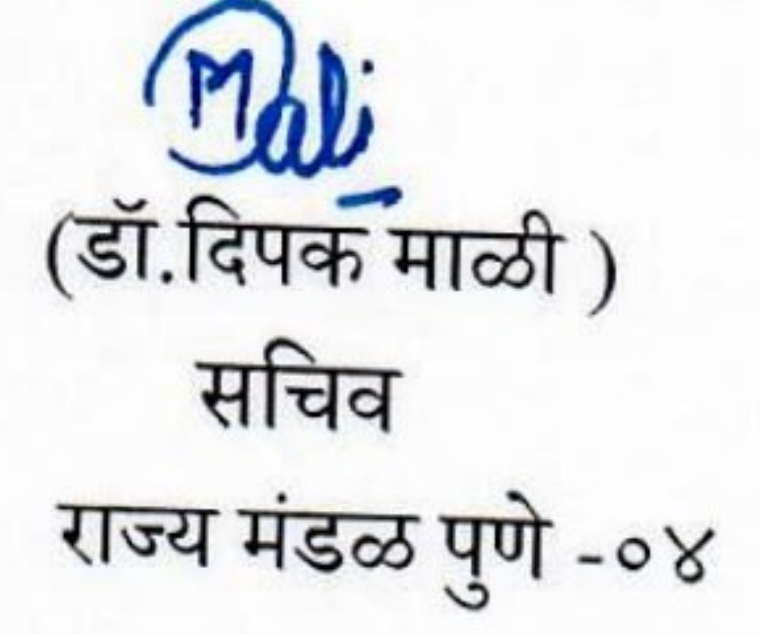 Mali
(डॉ.दिपक माळी )
सचिव
राज्य मंडळ पुणे -०४